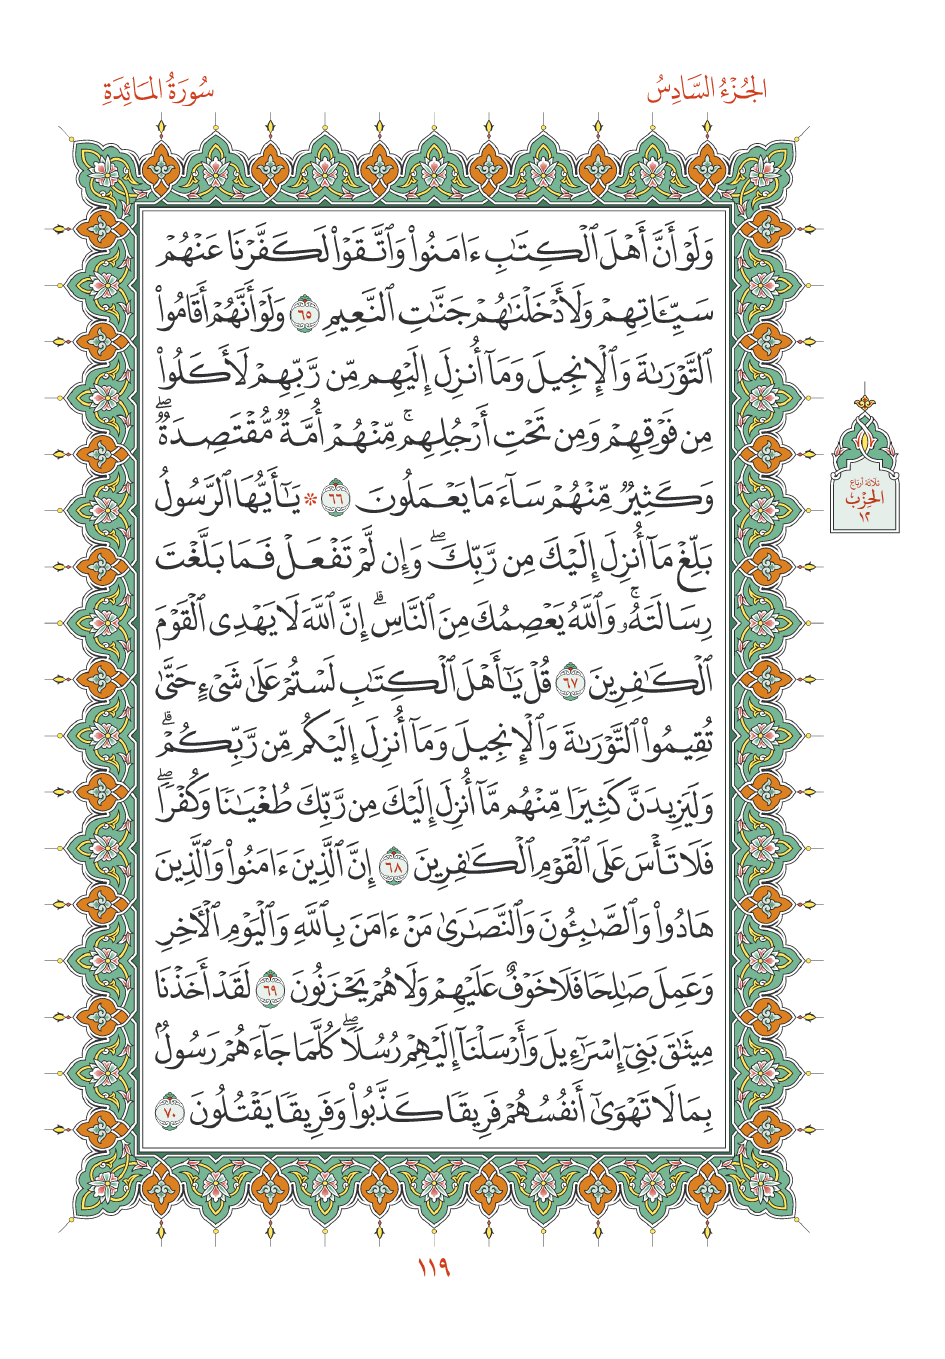 الجُزْءُ السَّادِسُ
سُورَةُ المَائِدَةِ
وَلَوْ أَنَّ أَهْلَ ٱلْكِتَٰبِ ءَامَنُوا۟ وَٱتَّقَوْا۟ لَكَفَّرْنَا عَنْهُمْ
سَيِّـَٔاتِهِمْ وَلَأَدْخَلْنَٰهُمْ جَنَّٰتِ ٱلنَّعِيمِ ٦٥ وَلَوْ أَنَّهُمْ أَقَامُوا۟
ٱلتَّوْرَىٰةَ وَٱلْإِنجِيلَ وَمَآ أُنزِلَ إِلَيْهِم مِّن رَّبِّهِمْ لَأَكَلُوا۟
مِن فَوْقِهِمْ وَمِن تَحْتِ أَرْجُلِهِمۚ مِّنْهُمْ أُمَّةٌ مُّقْتَصِدَةٌۖ
وَكَثِيرٌ مِّنْهُمْ سَآءَ مَا يَعْمَلُونَ ٦٦ ۞ يَٰٓأَيُّهَا ٱلرَّسُولُ
بَلِّغْ مَآ أُنزِلَ إِلَيْكَ مِن رَّبِّكَۖ وَإِن لَّمْ تَفْعَلْ فَمَا بَلَّغْتَ
رِسَالَتَهُۥۚ وَٱللَّهُ يَعْصِمُكَ مِنَ ٱلنَّاسِۗ إِنَّ ٱللَّهَ لَا يَهْدِى ٱلْقَوْمَ
ٱلْكَٰفِرِينَ ٦٧ قُلْ يَٰٓأَهْلَ ٱلْكِتَٰبِ لَسْتُمْ عَلَىٰ شَىْءٍ حَتَّىٰ
تُقِيمُوا۟ ٱلتَّوْرَىٰةَ وَٱلْإِنجِيلَ وَمَآ أُنزِلَ إِلَيْكُم مِّن رَّبِّكُمْۗ
وَلَيَزِيدَنَّ كَثِيرًا مِّنْهُم مَّآ أُنزِلَ إِلَيْكَ مِن رَّبِّكَ طُغْيَٰنًا وَكُفْرًاۖ
فَلَا تَأْسَ عَلَى ٱلْقَوْمِ ٱلْكَٰفِرِينَ ٦٨ إِنَّ ٱلَّذِينَ ءَامَنُوا۟ وَٱلَّذِينَ
هَادُوا۟ وَٱلصَّٰبِـُٔونَ وَٱلنَّصَٰرَىٰ مَنْ ءَامَنَ بِٱللَّهِ وَٱلْيَوْمِ ٱلْـَٔاخِرِ
وَعَمِلَ صَٰلِحًا فَلَا خَوْفٌ عَلَيْهِمْ وَلَا هُمْ يَحْزَنُونَ ٦٩ لَقَدْ أَخَذْنَا
مِيثَٰقَ بَنِىٓ إِسْرَٰٓءِيلَ وَأَرْسَلْنَآ إِلَيْهِمْ رُسُلًاۖ كُلَّمَا جَآءَهُمْ رَسُولٌۢ
بِمَا لَا تَهْوَىٰٓ أَنفُسُهُمْ فَرِيقًا كَذَّبُوا۟ وَفَرِيقًا يَقْتُلُونَ ٧٠
ثلاثة أرباع
الحِزْب
١٢
١١٩